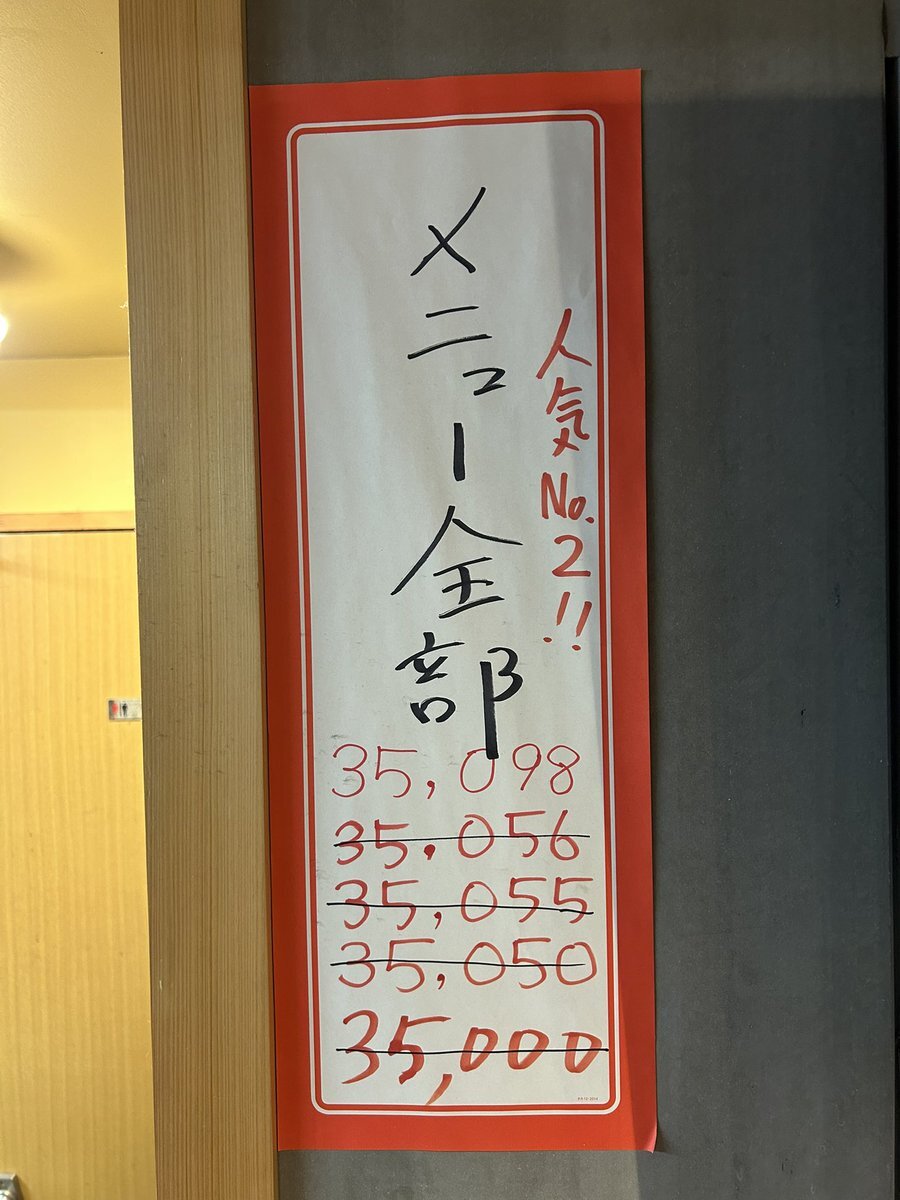 人気No.2!!
メニュー全部
35,098
35,056
35,055
35,050
35,000